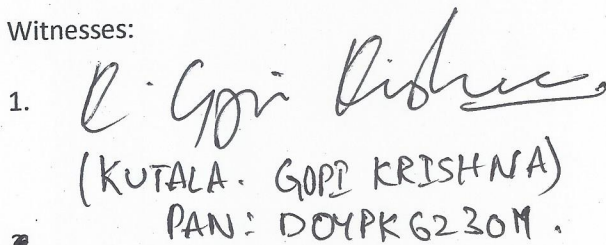 Witnesses:
1. K. Gopi Krishna
(KUTALA. GOPI KRISHNA)
PAN: DOYPK6230M.